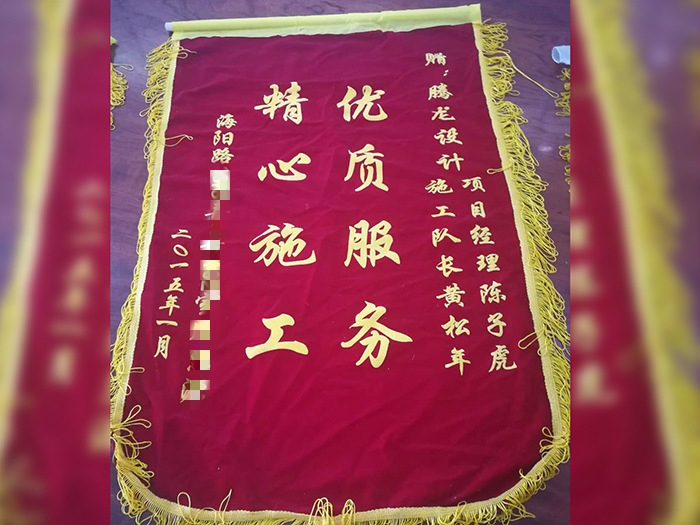 赠:腾龙设计
项目经理陈子虎
施工队长黄松年
优质服务
精心施工
海阳路
二〇一五年一月